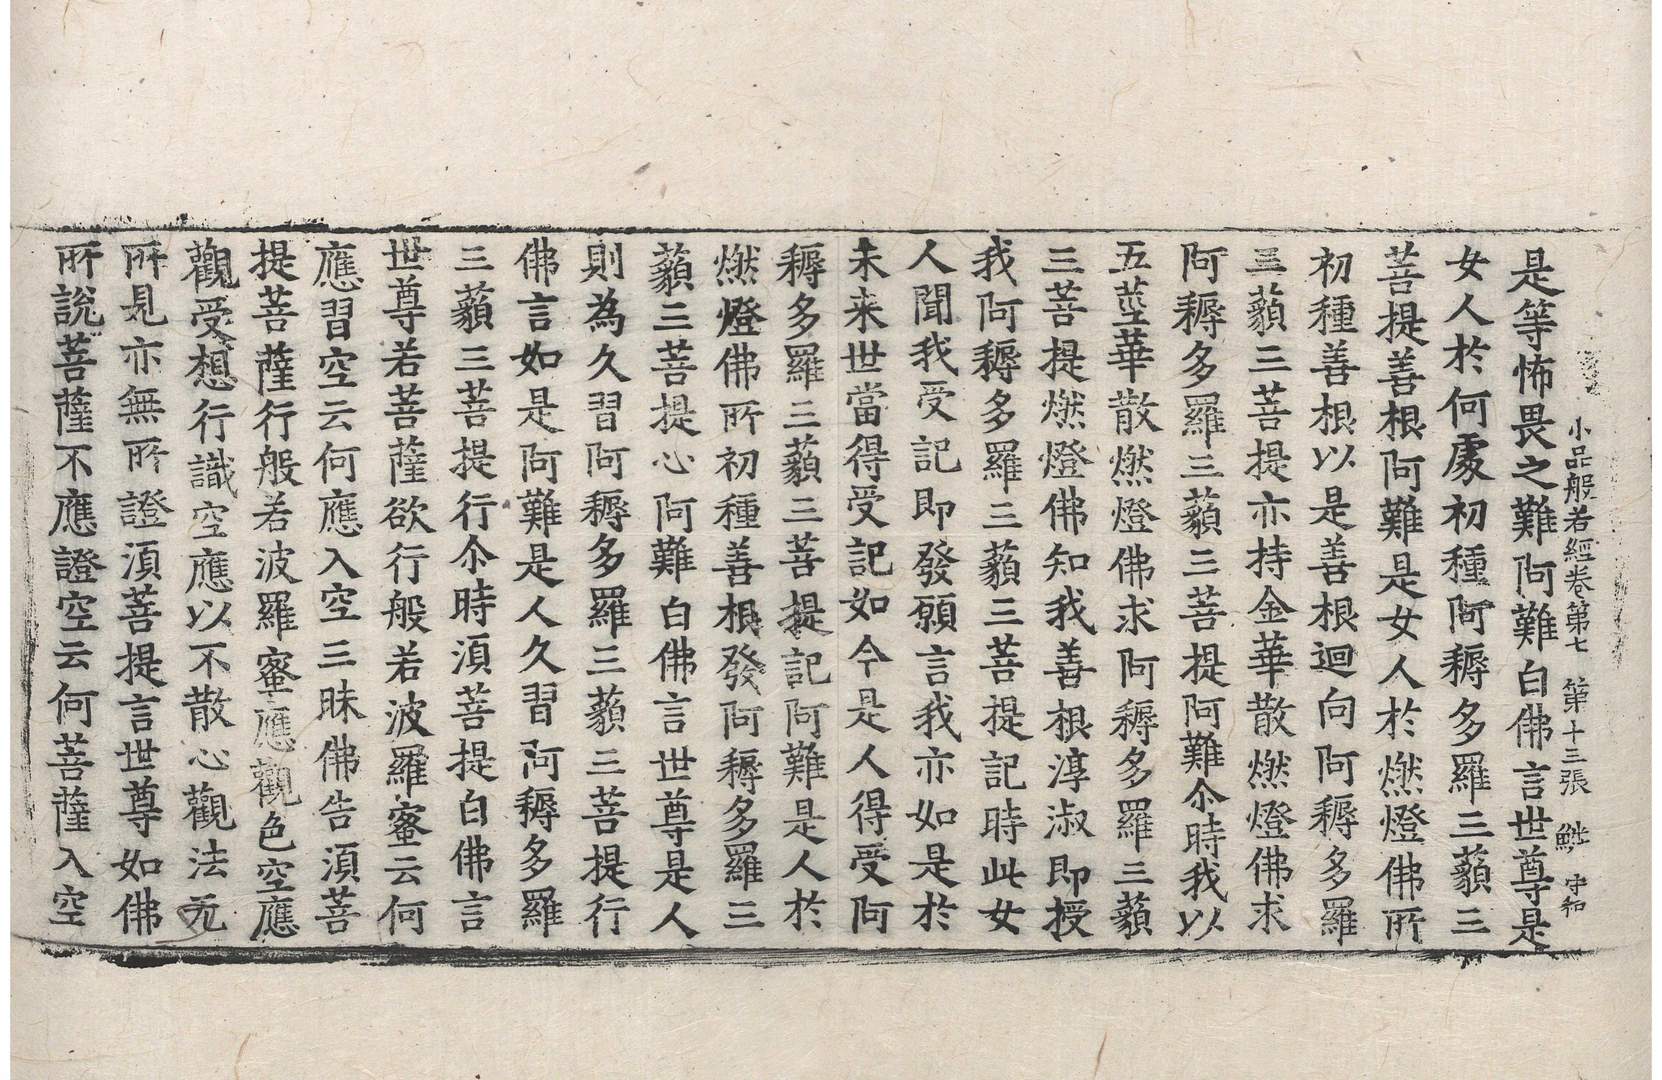 小品般若經卷第七 第十三張 鮏 守和
是等怖畏之難阿難白佛言世尊是
女人於何處初種阿耨多羅三藐三
菩提善根阿難是女人於燃燈佛所
初種善根以是善根迴向阿耨多羅
三藐三菩提亦持金華散燃燈佛求
阿耨多羅三藐三菩提阿難尒時我以
五莖華散燃燈佛求阿耨多羅三藐
三菩提燃燈佛知我善根淳淑即授
我阿耨多羅三藐三菩提記時此女
人聞我受記即發願言我亦如是於
未来世當得受記如今是人得受阿
耨多羅三藐三菩提記阿難是人於
燃燈佛所初種善根發阿耨多羅三
藐三菩提心阿難白佛言世尊是人
則為久習阿耨多羅三藐三菩提行
佛言如是阿難是人久習阿耨多羅
三藐三菩提行尒時湏菩提白佛言
世尊若菩薩欲行般若波羅蜜云何
應習空云何應入空三昧佛告湏菩
提菩薩行般若波羅蜜應觀色空應
觀受想行識空應以不散心觀法无
所見亦無所證湏菩提言世尊如佛
所說菩薩不應證空云何菩薩入空